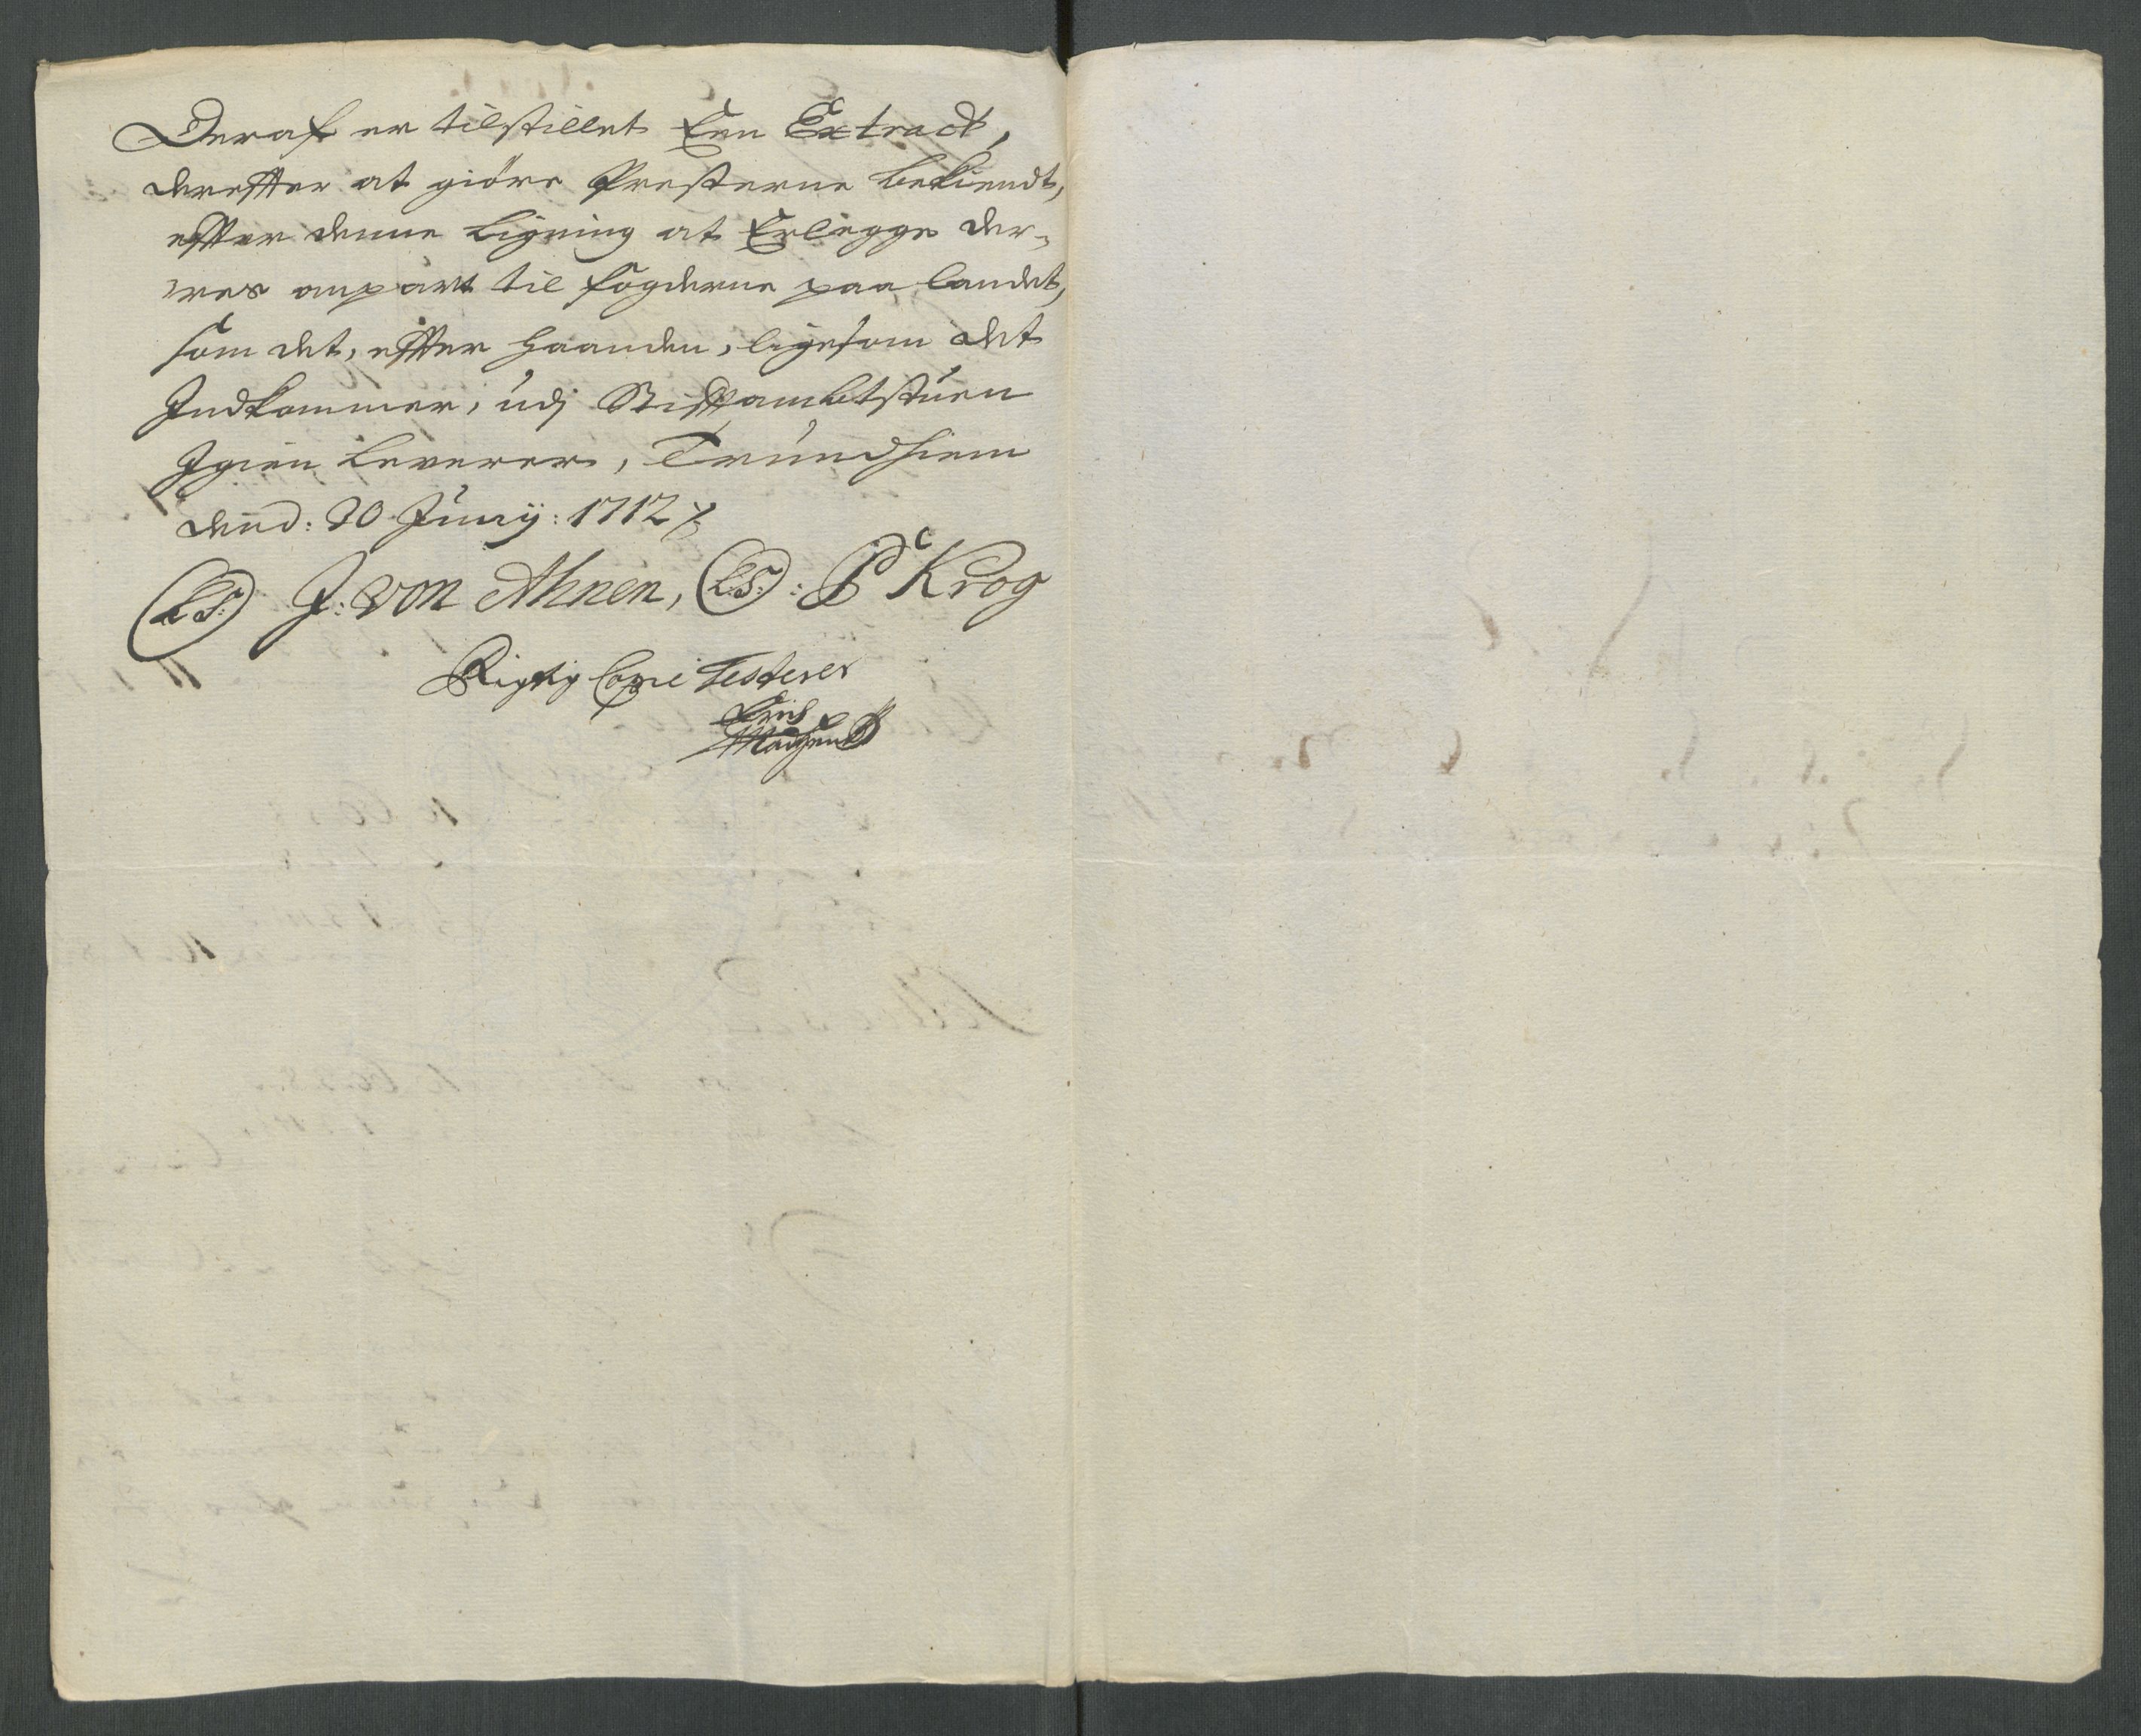 Deraf er tilstillet Een Extract,
derefter at giöre Presterne bekiendt,
efter denne Ligning at Erlegge der-
res anpart til fogderne paa landet,
som det, efter haanden, ligesom det
Indkommer, udj Stiftambtstuen
Igien Leverer, Trundhiem
dend: 20 Junij: 1712
LS: J: von Ahnen, LS: P Krog
Rigtig Copie Testerer